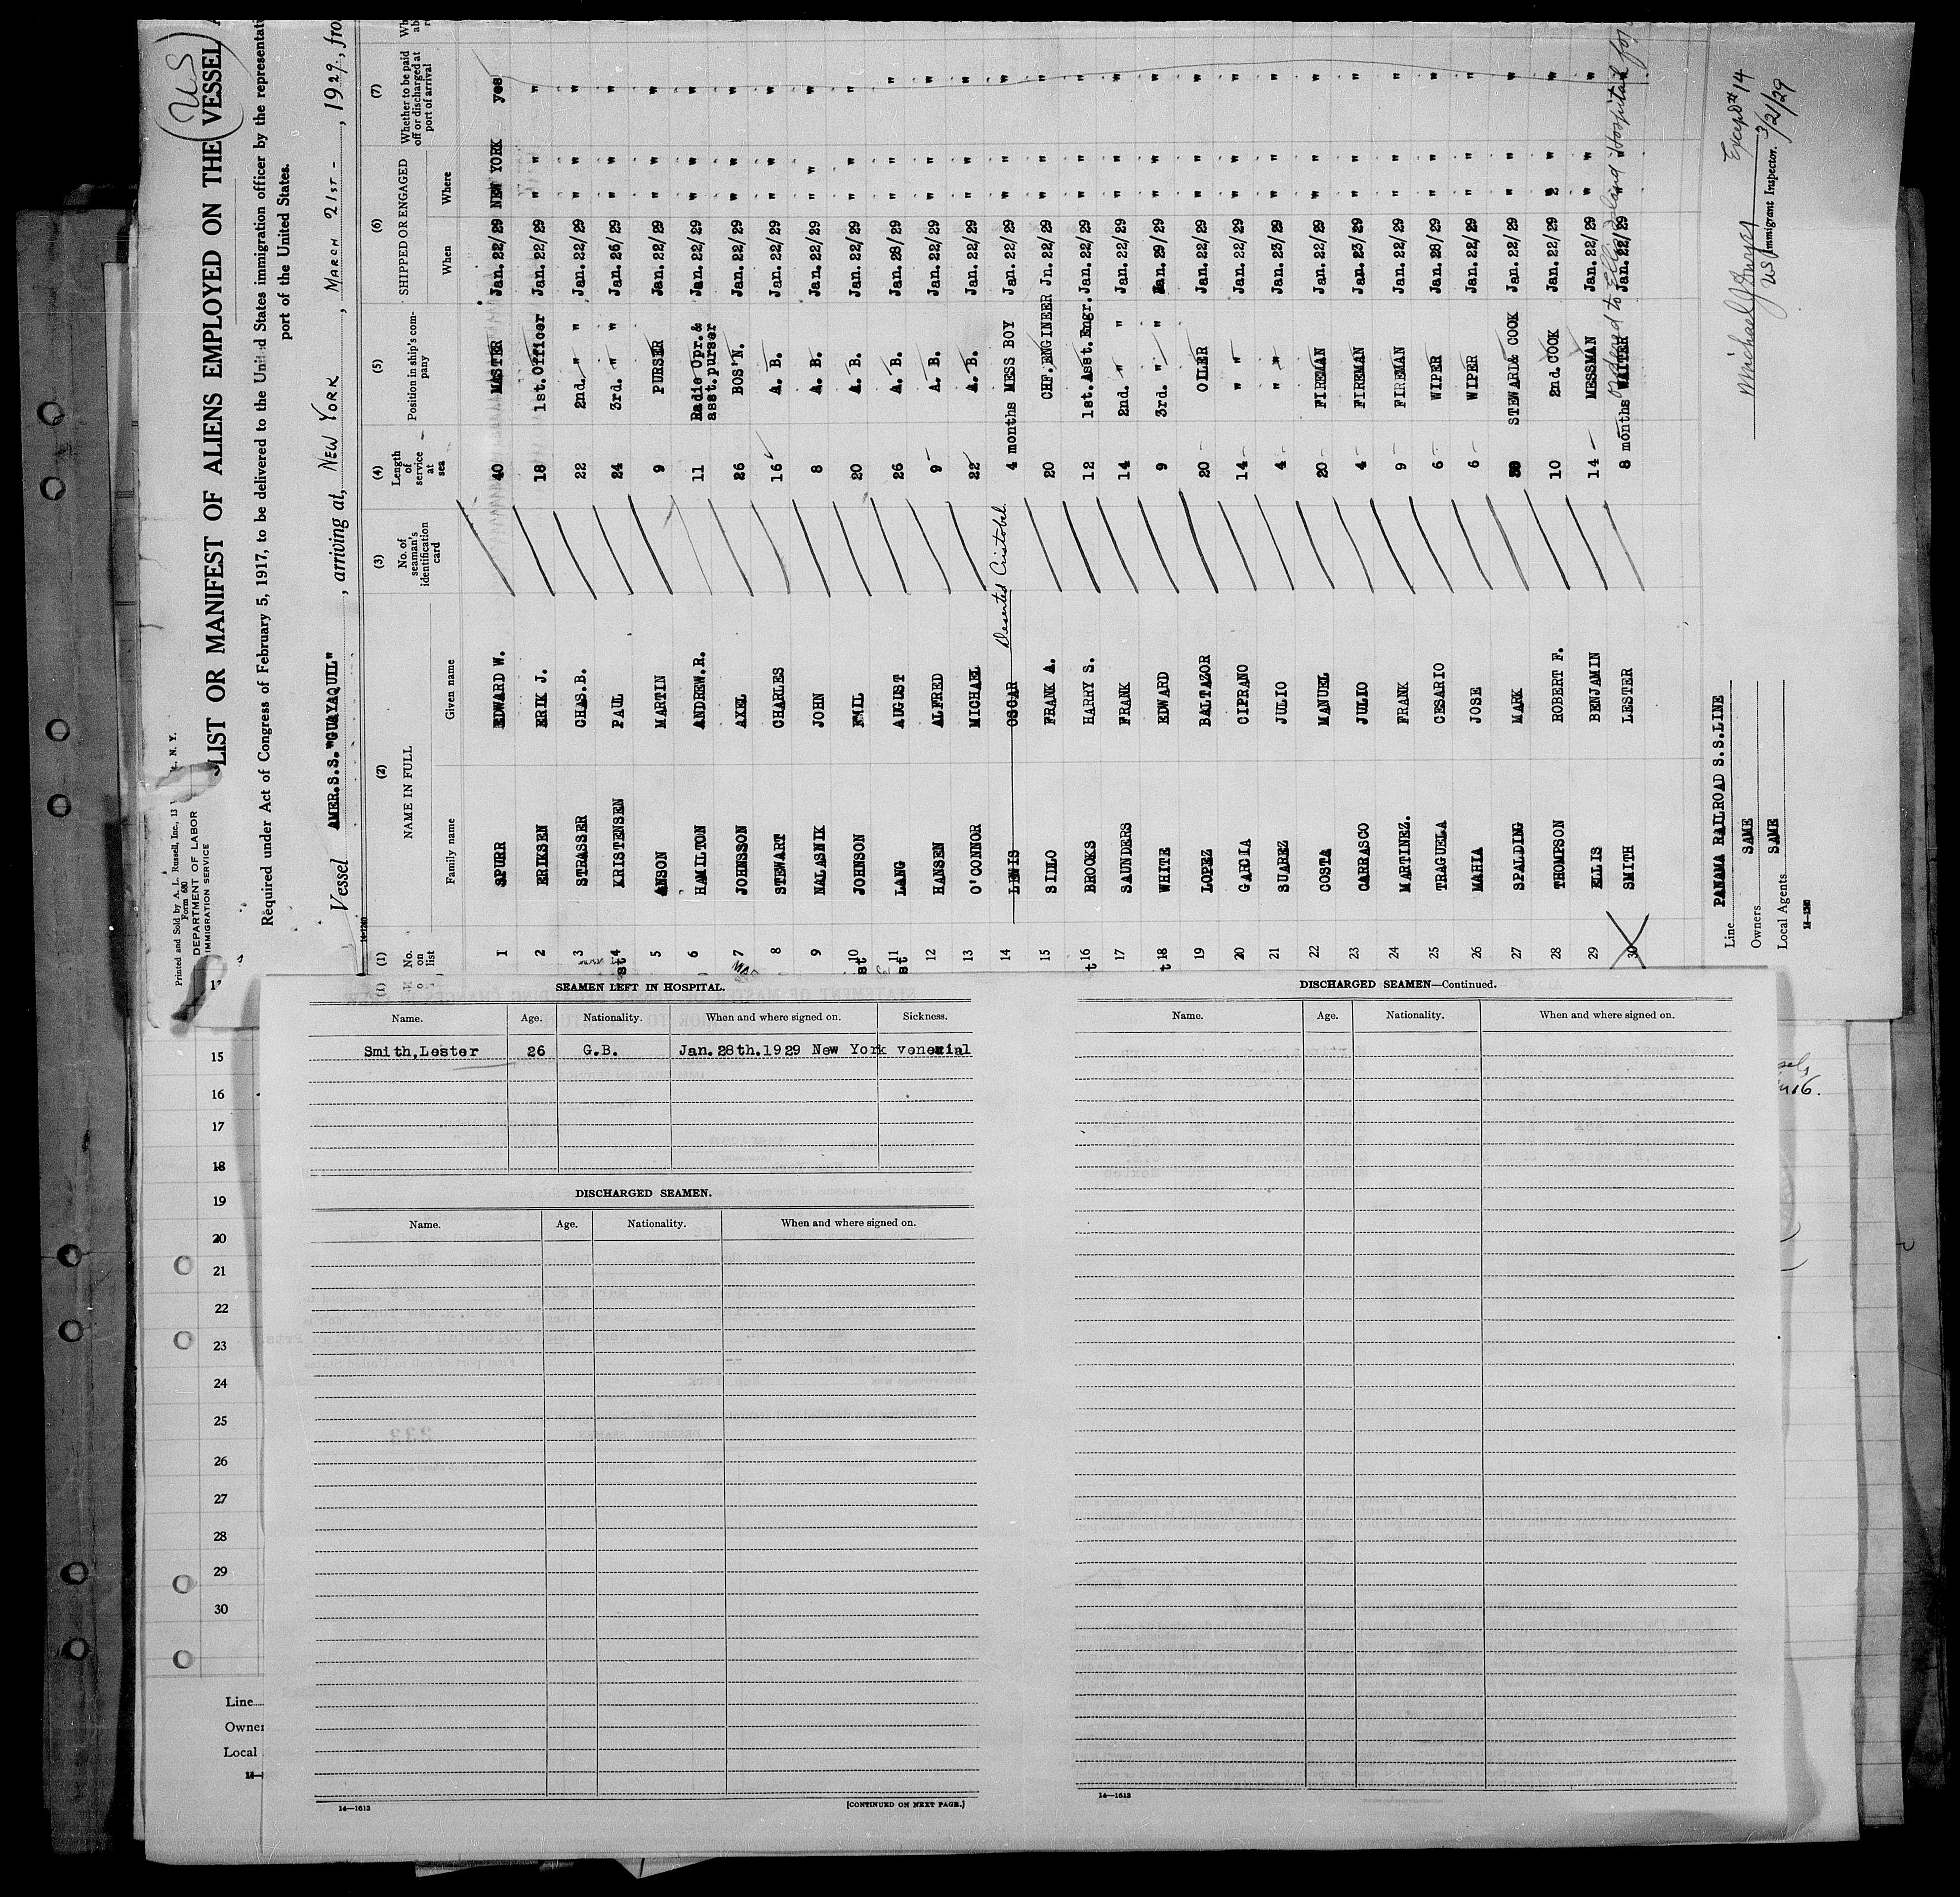 Printed and Sold by A. L. Russell, Inc., 13
Form 680
DEPARTMENT OF LABOR
IMMIGRATION SERVICE
(US)
LIST OR MANIFEST OF ALIENS EMPLOYED ON THE VESSEL
Required under Act of Congress of February 5, 1917, to be delivered to the United States immigration officer by the representati
port of the United States.
Vessel AMER.S.S."GUAYAQUIL", arriving at, NEW YORK, MARCH 21ST -, 1929, fro
(1) (2) (3) (4) (5) (6) (7)
No. on list NAME IN FULL No. of seaman's identification card Length of service at sea Position in ship's company SHIPPED OR ENGAGED Whether to be paid off or discharged at port of arrival
Family name Given name When Where
1 SPURR EDWARD W. 40 MASTER Jan.22/29 NEW YORK yes
2 ERIKSEN ERIK J. 18 1st.Officer Jan.22/29 " " "
3 STRASSER CHAS.B. 22 2nd. " Jan.22/29 " " "
4 KRISTENSEN PAUL 24 3rd. " " Jan.26/29 " " "
5 ANSON MARTIN 9 PURSER Jan.22/29 " " "
6 HAMILTON ANDREW.R. 11 Radio Opr.& asst.purser Jan.22/29 " " "
7 JOHNSSON AXEL 26 BOS'N. Jan.22/29 " " "
8 STEWART CHARLES 16 A. B. Jan.22/29 " " "
9 MALASNIK JOHN 8 A. B. Jan.22/29 " " "
10 JOHNSON EMIL 20 A. B. Jan.22/29 " " "
11 LANG AUGUST 26 A. B. Jan.28/29 " " "
12 HANSEN ALFRED 9 A. B. Jan.22/29 " " "
13 O'CONNOR MICHAEL 22 A. B. Jan.22/29 " " "
14 LEWIS OSCAR Deserted Cristobal. 4 months MESS BOY Jan.22/29 " " "
15 SIDLO FRANK A. 20 CHF.ENGINEER Jn.22/29 " " "
16 BROOKS HARRY S. 12 1st.Asst.Engr. Jan.22/29 " " "
17 SAUNDERS FRANK 14 2nd. " " Jan.22/29 " " "
18 WHITE EDWARD 9 3rd. " " Jan.29/29 " " "
19 LOPEZ BALTAZOR 20 OILER Jan.22/29 " " "
20 GARCIA CIPRANO 14 " " Jan.22/29 " " "
21 SUAREZ JULIO 4 " " Jan.23/29 " " "
22 COSTA MANUEL 20 FIREMAN Jan.22/29 " " "
23 CARRASCO JULIO 4 FIREMAN Jan.23/29 " " "
24 MARTINEZ. FRANK 9 FIREMAN Jan.22/29 " " "
25 TRAGUELA CESARIO 6 WIPER Jan.28/29 " " "
26 MAHIA JOSE 6 WIPER Jan.22/29 " " "
27 SPALDING MARK 30 STEWARD& COOK Jan.22/29 " " "
28 THOMPSON ROBERT F. 10 2nd.COOK Jan.22/29 " " "
29 ELLIS BENJAMIN 14 MESSMAN Jan.22/29 " " "
30 SMITH LESTER 8 months WAITER Jan.22/29 " "
to Ellis Island Hospital for
Line PANAMA RAILROAD S.S.LINE
Owners SAME
Local Agents SAME
Except # 14
3/21/29
US Immigrant Inspector.
SEAMEN LEFT IN HOSPITAL.
Name. Age. Nationality. When and where signed on. Sickness.
Smith,Lester 26 G.B. Jan.28th.1929 New York venerial
DISCHARGED SEAMEN.
Name. Age. Nationality. When and where signed on.
14—1613
[CONTINUED ON NEXT PAGE.]
DISCHARGED SEAMEN—Continued.
Name. Age. Nationality. When and where signed on.
14—1613
15
16
17
18
19
20
21
22
23
24
25
26
27
28
29
30
Line
Owner
Local